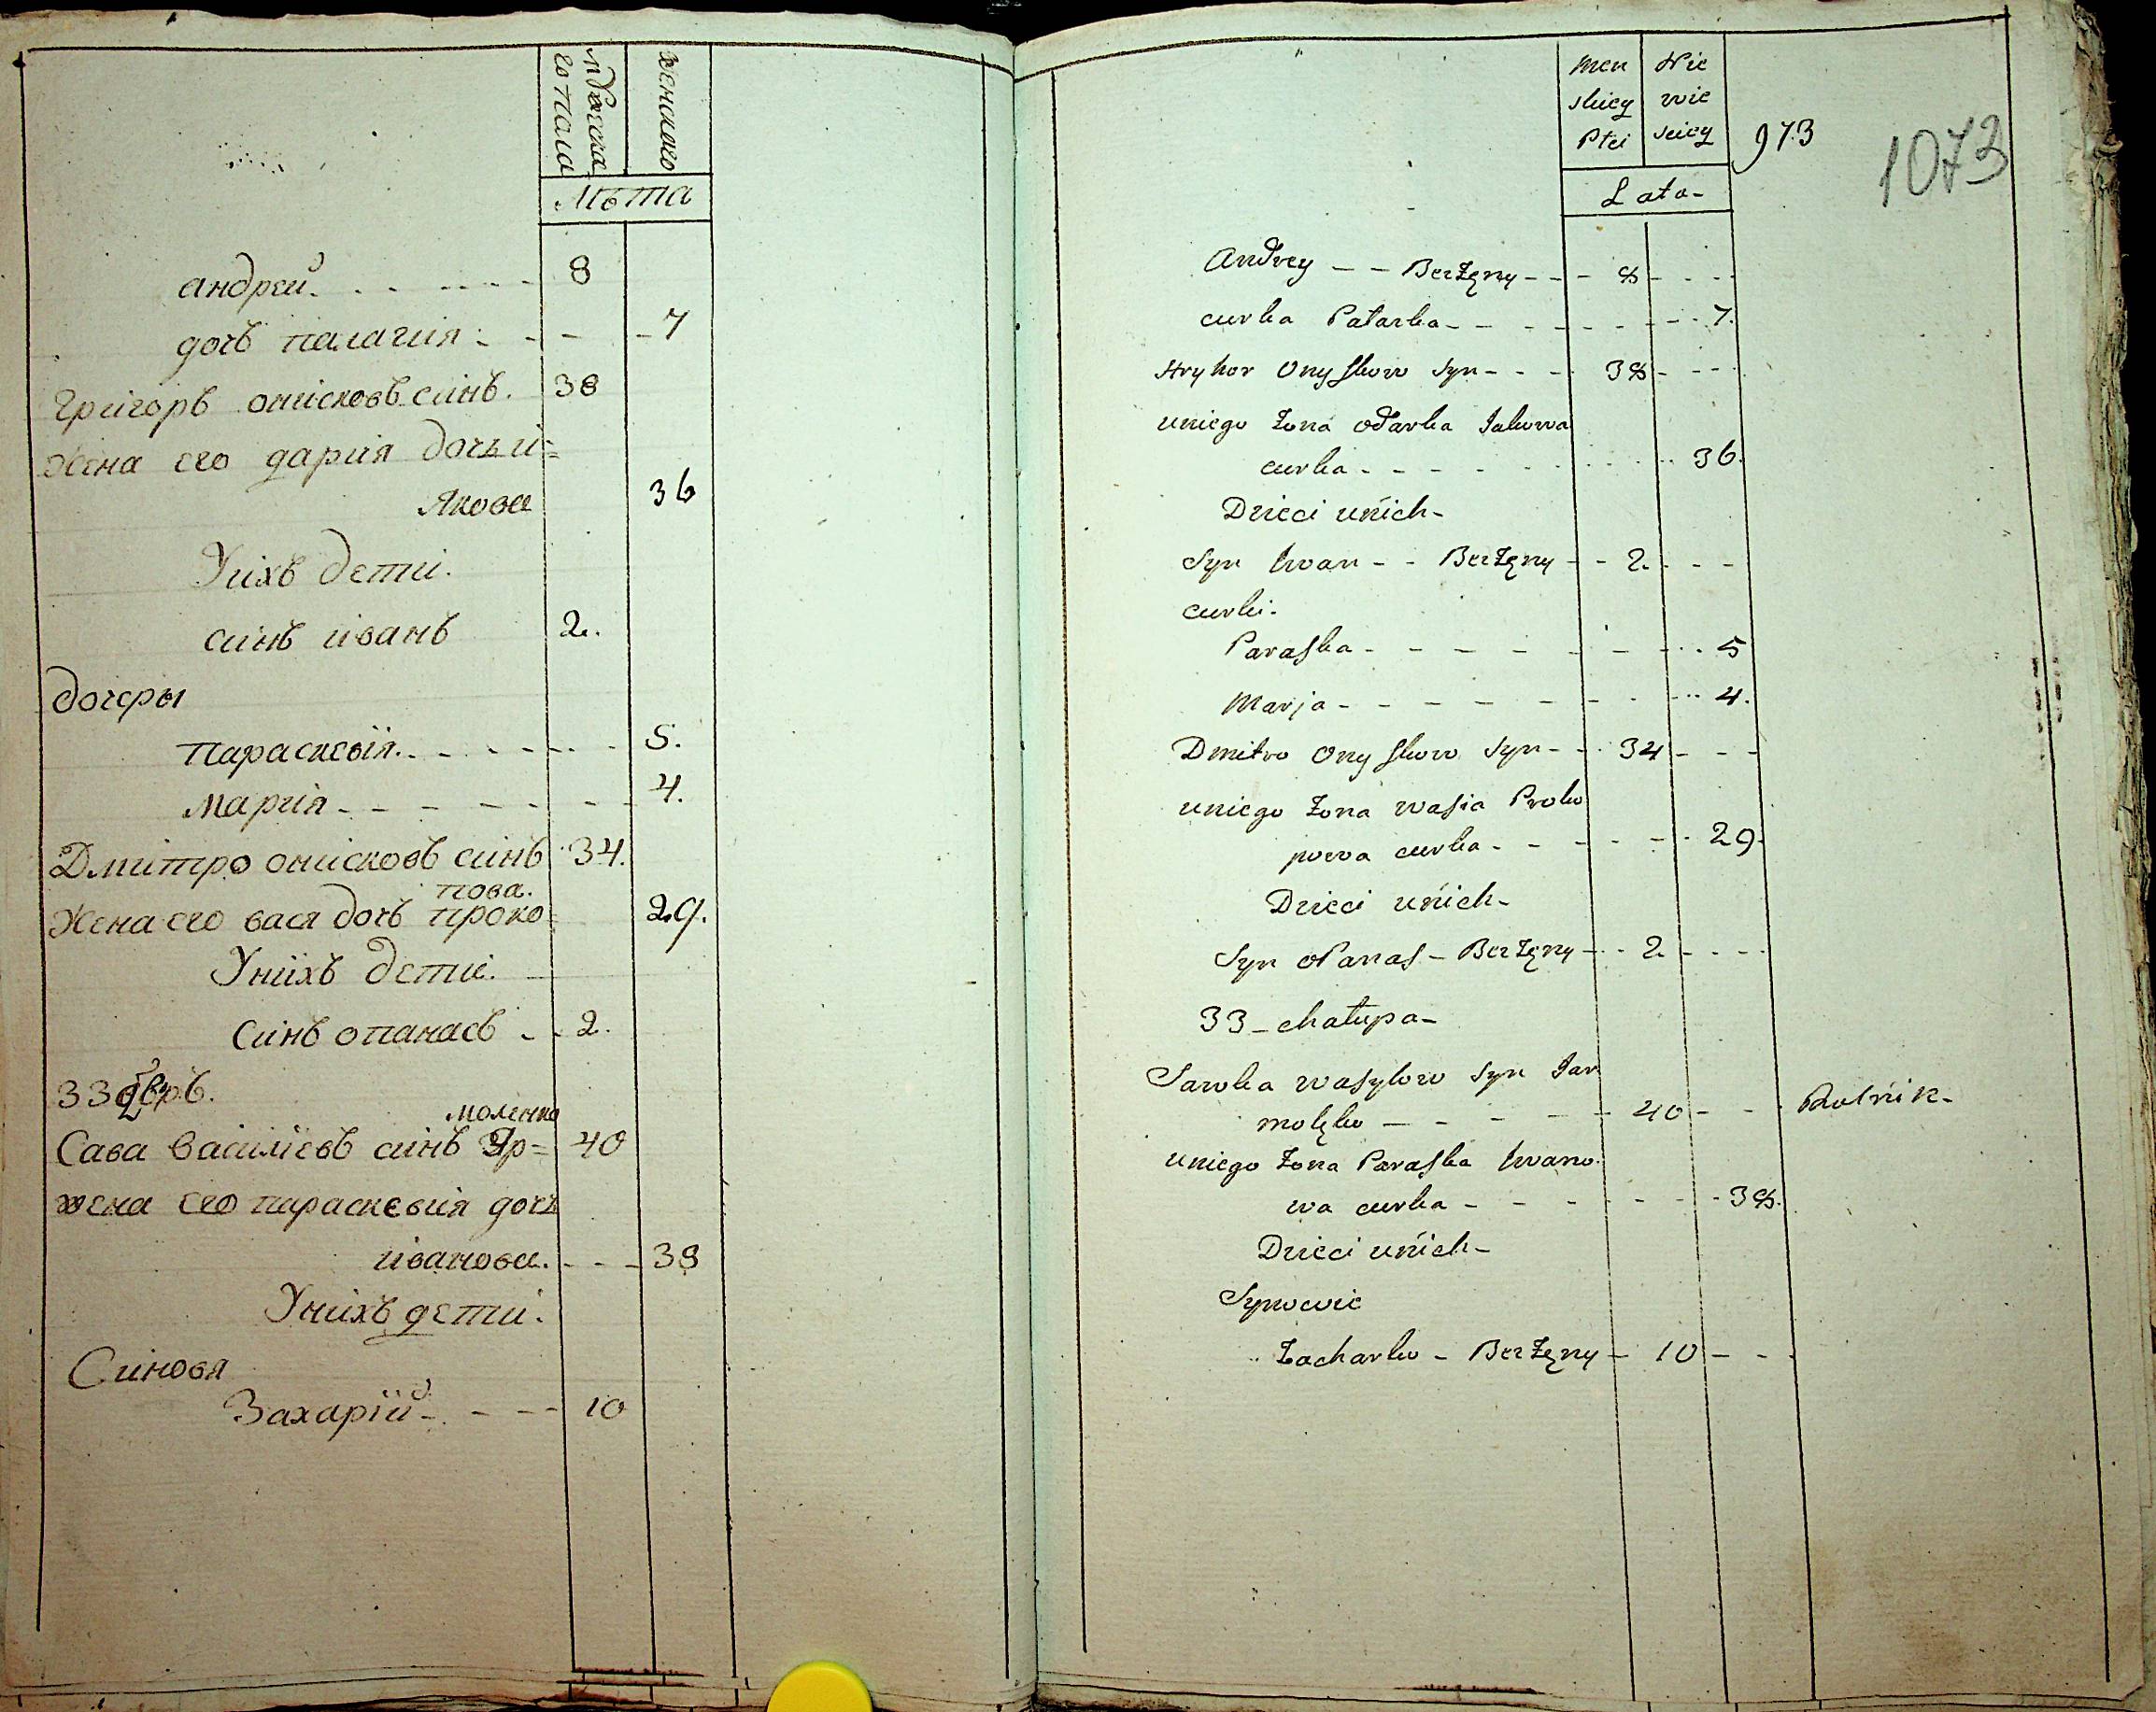 мужеска
го пола
женского
Лѣта
андрей 8
дочь палагия 7
Григоръ онисковъ синъ. 38
жена его дария дочь и=
Якова 36
Унихъ дети.
синъ иванъ 2.
дочеры
параскевия. 5.
мария 4.
Дмитро онисковъ синъ 34.
пова.
Жена его вася дочь проко= 29.
Унихъ дети.
Синъ опанасъ 2.
33 дворъ.
моленко
Сава василиевъ синъ Яр= 40
жена его параскевия дочь
иванова. 38
Унихъ дети.
Синовя
Захарий 10
men Nie
skiey wie
Płci sciey 973 1073
Lata
Andrey - - Bezżęny 8
curka Pałazka 7.
Hryhor Onyskow syn 38
uniego żona Odarka Jakowa
curka 36.
Dzieci unich
Syn Iwan - - Bezżęny 2
curki.
Paraska 5
Marja 4.
Dmitro Onyskow syn 34
uniego żona Wasia Proko
powa curka 29.
Dzieci unich
Syn Opanas - Bezżęny 2
33 chałupa
Sawka Wasylow syn Jar
molęko 40 Rolnik
uniego żona Paraska Iwano
wa curka 38.
Dzieci unich
Synowie
Zacharko - Bezżęny 10